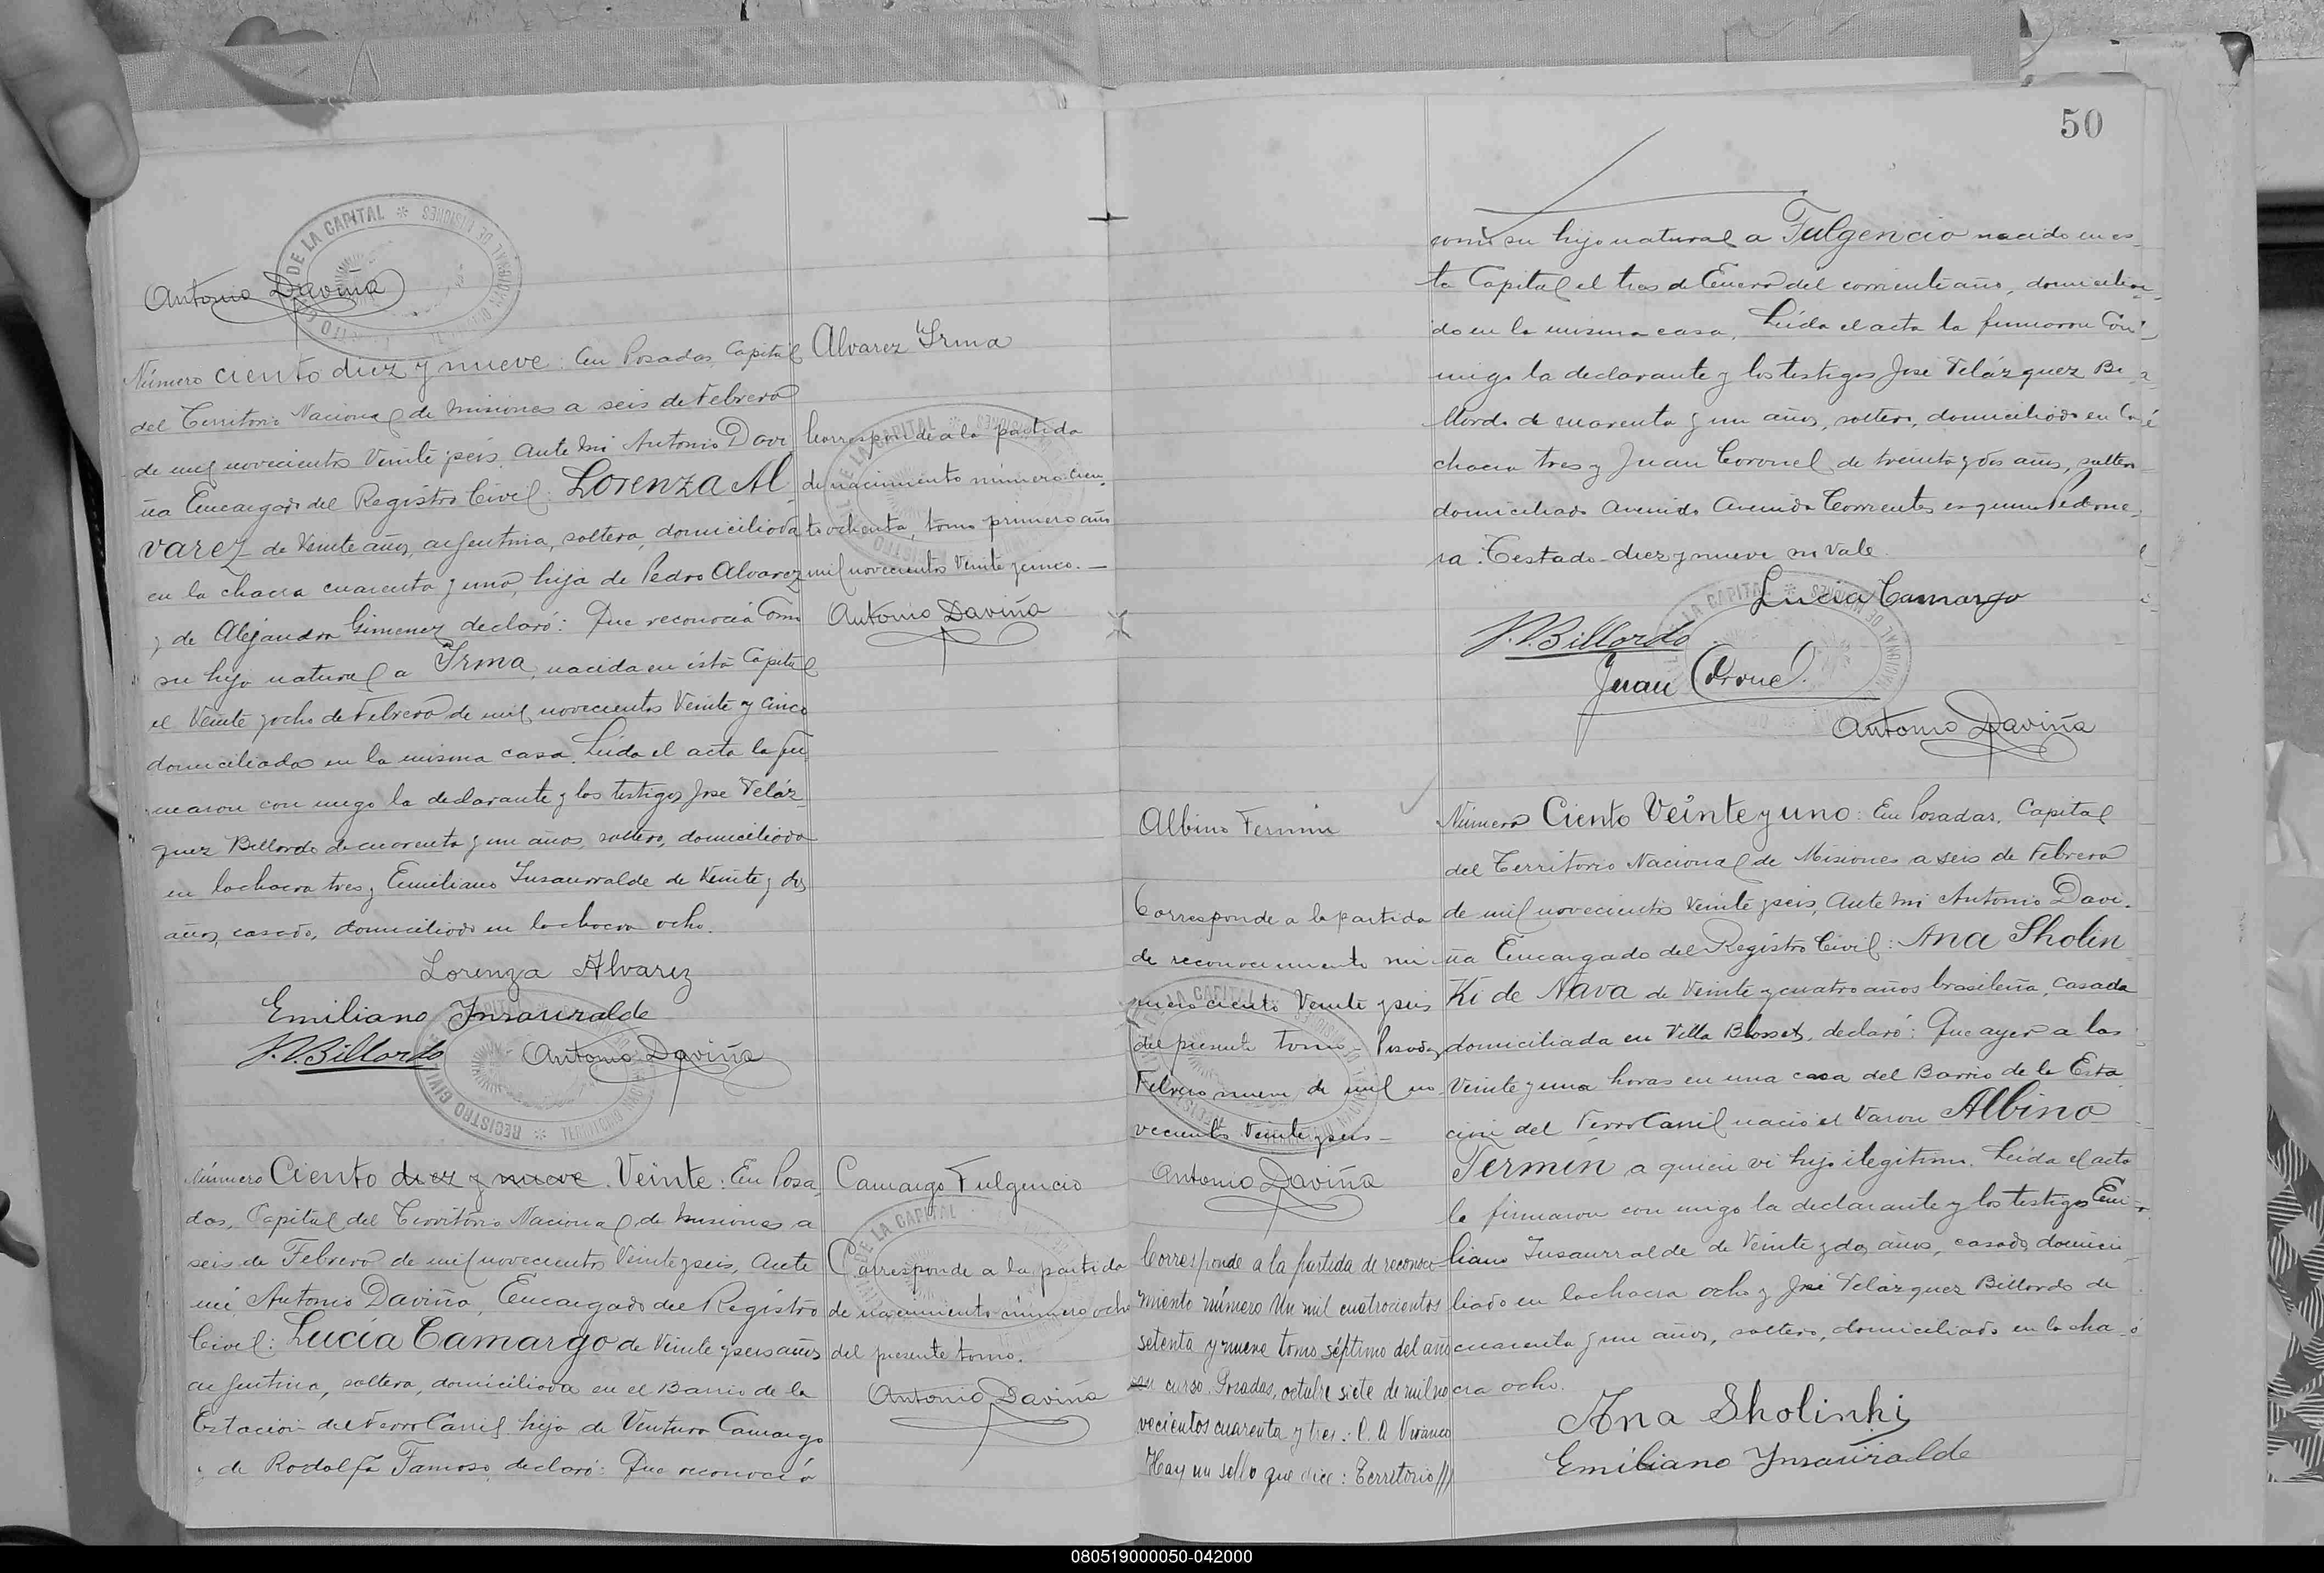 Antonio Daviña
DE LA CAPITAL * 
Número ciento diez y nueve: En Posadas, Capital
del Territorio Nacional de Misiones a seis de Febrero
de mil novecientos veinte y seis, Ante mi Antonio Davi
ña Encargado del Registro Civil: Lorenza Al
varez de veinte años, argentina, soltera, domiciliada
en la chacra cuarenta y una, hija de Pedro Alvarez
y de Alejandra Gimenez declaró: Que reconocía como
su hija natural a Irma, nacida en ésta Capital
el veinte y ocho de Febrero de mil novecientos veinte y cinco
domiciliada en la misma casa. Leída el acta la fir
maron con migo la declarante y los testigos Jose Veláz
quez Billordo de cuarenta y un años, soltero, domiciliado
en la chacra tres y Emiliano Insaurralde de veinte y dos
años, casado, domiciliado en la chacra ocho.
Lorenza Alvarez
Emiliano Insaurralde
J.V.Billordo
Antonio Daviña
Alvarez Irma
Corresponde a la partida
de nacimiento número cien
to ochenta, tomo primero año
mil novecientos veinte y cinco.
Antonio Daviña
Número Ciento diez y nueve. Veinte: En Posa
das, Capital del Territorio Nacional de Misiones a
seis de Febrero de mil novecientos veinte y seis, Ante
mi Antonio Daviña, Encargado del Registro
Civil: Lucía Camargo de veinte y seis años
argentina, soltera, domiciliada en el Barrio de la
Estación del Ferro Carril hija de Ventura Camargo
y de Rodolfa Famoso, declaró: Que reconocía
Camargo Fulgencio
Corresponde a la partida
de nacimiento número ocho
del presente tomo.
Antonio Daviña
50
como su hijo natural a Fulgencio nacido en es
ta Capital el tres de Enero del corriente año, domicilia
do en la misma casa. Leída el acta la firmaron con
migo la declarante y los testigos Jose Velázquez Bi
llordo de cuarenta y un años, soltero, domiciliado en la
chacra tres y Juan Coronel de treinta y dos años, soltero
domiciliado Avenida Avenida Corrientes esquina Pedrone
ra. Testado-diez y nueve no vale.
Lucia Camargo
J.V.Billordo
Juan Coronel
Antonio Daviña
Albino Fermin
Corresponde a la partida
de reconocimiento nú
mero ciento veinte y seis
del presente tomo. Posadas
Febrero nueve de mil no
vecientos veinte y seis
Antonio Daviña
Corresponde a la partida de reconoci
miento número Un mil cuatrocientos
setenta y nueve tomo séptimo del año
en curso. Posadas, octubre siete de mil no
vecientos cuarenta y tres.
Hay un sello que dice: Territorio ///
Número Ciento Veinte y uno: En Posadas, Capital
del Territorio Nacional de Misiones a seis de Febrero
de mil novecientos veinte y seis, Ante mi Antonio Davi
ña Encargado del Registro Civil: Ana Sholin
Ki de Nava de veinte y cuatro años brasileña, casada
domiciliada en Villa Blosset, declaró: Que ayer a las
veinte y una horas en una casa del Barrio de la Esta
ción del Ferro Carril nació el varon Albino
Fermín a quien vi hijo ilegitimo. Leída el acta
la firmaron con migo la declarante y los testigos Emi
liano Insaurralde de veinte y dos años, casado, domici
liado en la chacra ocho y José Velázquez Billordo de
cuarenta y un años, soltero, domiciliado en la cha
cra ocho.
Ana Sholinki
Emiliano Insaurralde
080519000050-042000